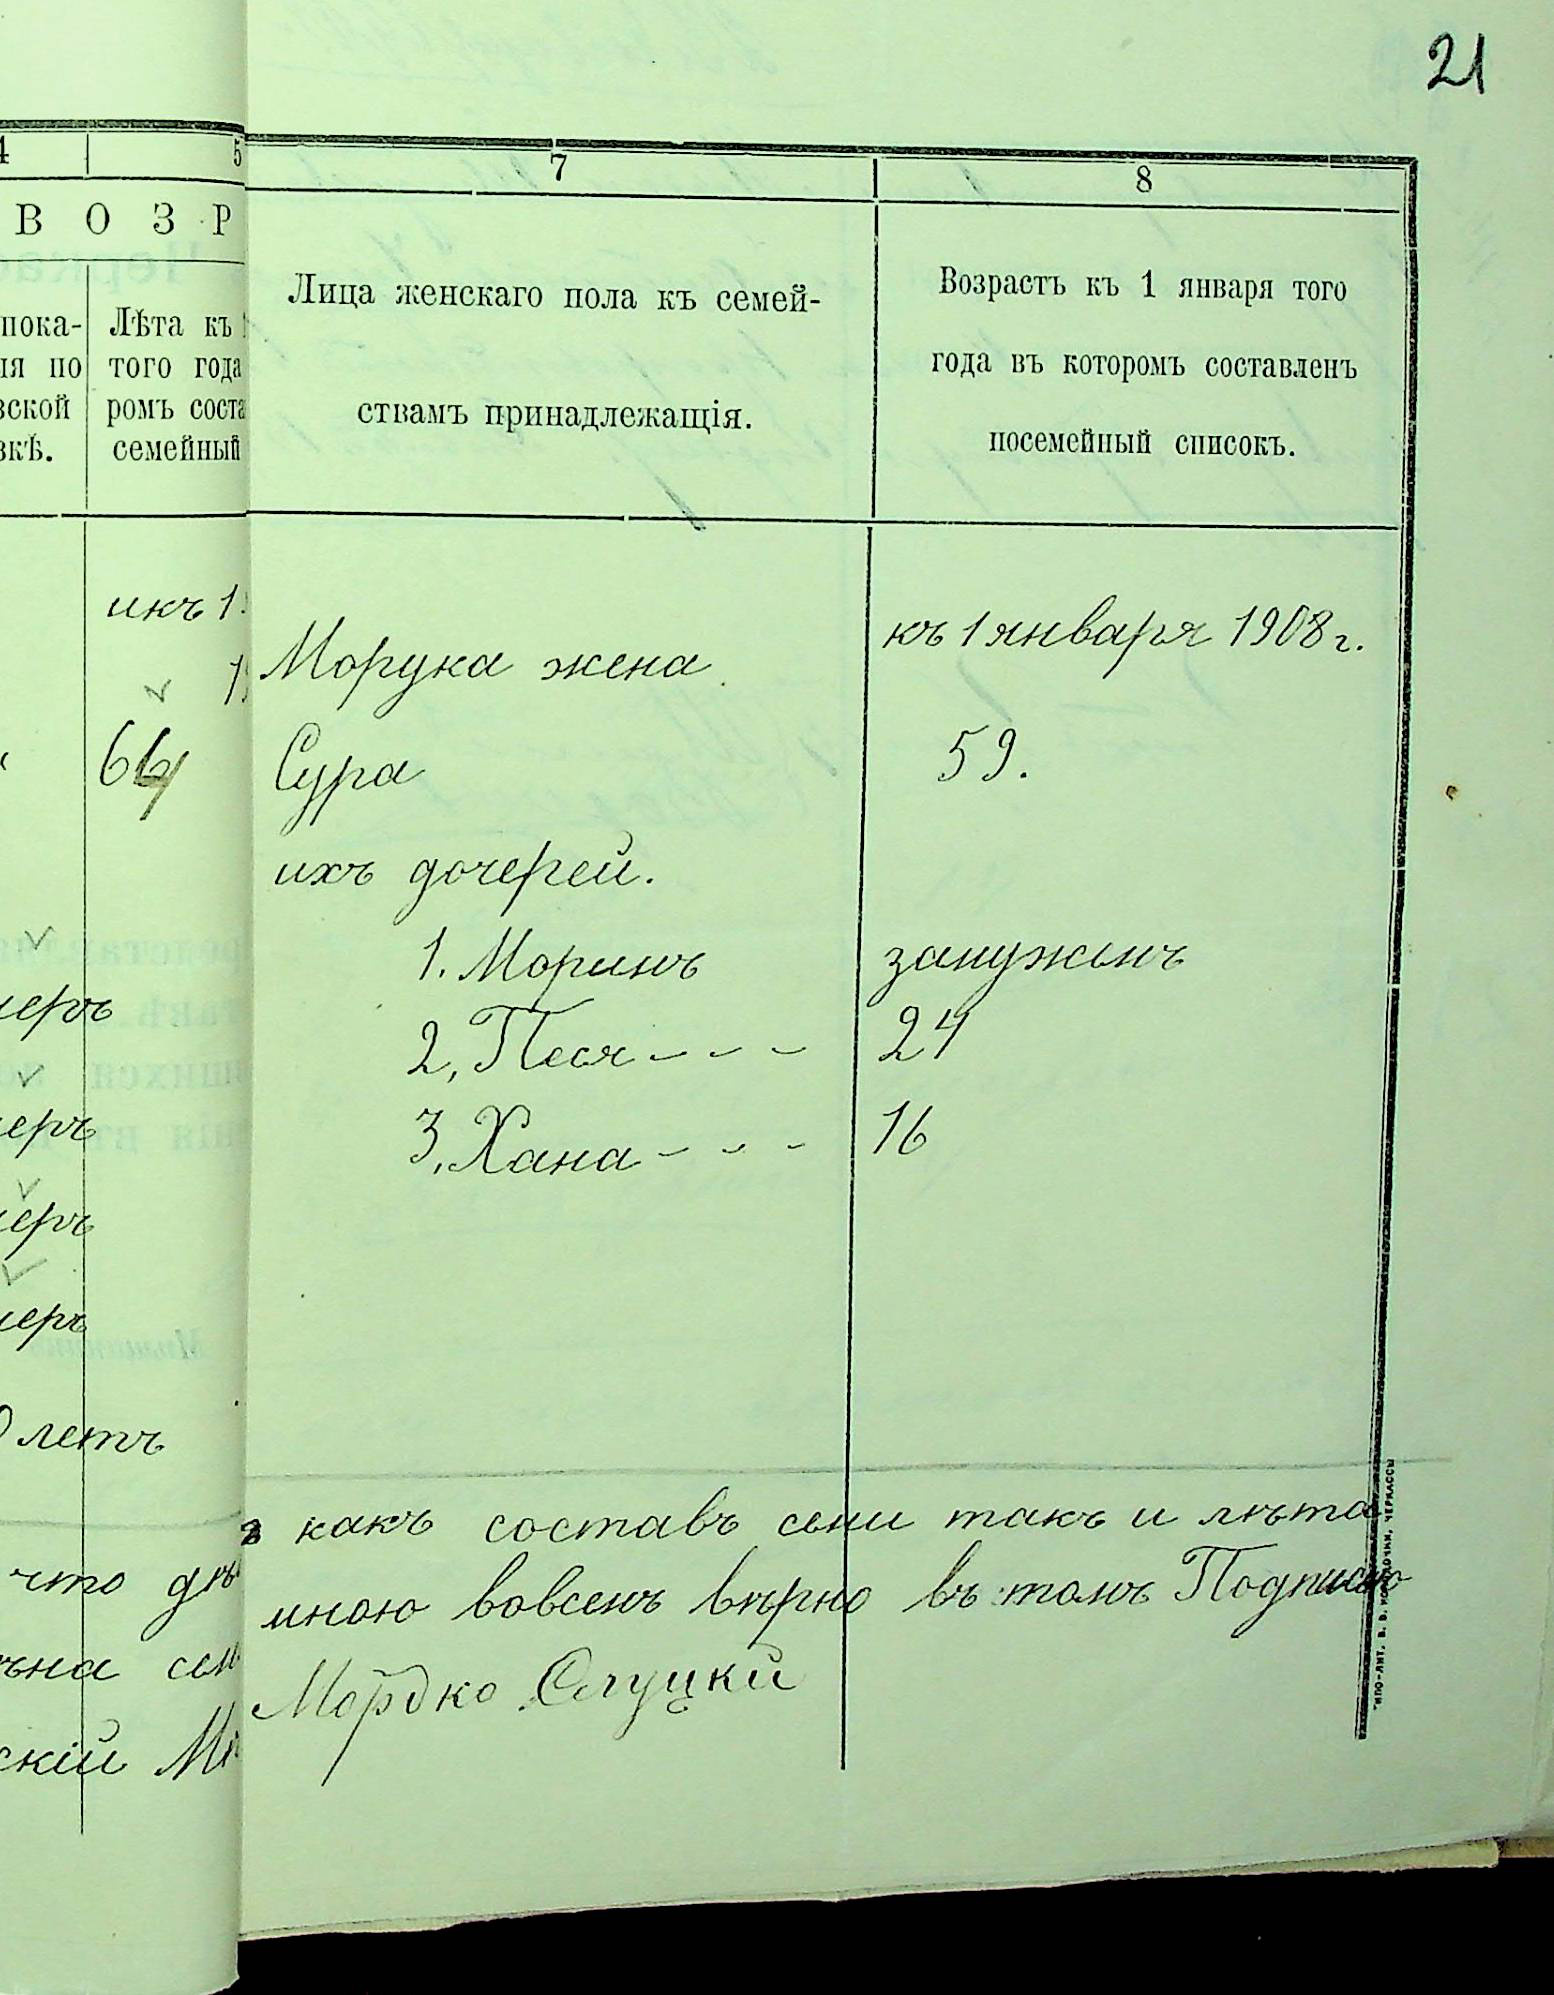 21
4
5
7
8
ВОЗР
пока-
ія по
вской
зкѣ.
Лѣта къ
того года
ромъ соста
семейный
Лица женскаго пола къ семей-
ствамъ принадлежащія.
Возрастъ къ 1 января того
года въ которомъ составленъ
посемейный списокъ.
икъ 1
къ 1 января 1908 г.
Морука жена
64
Сура
59.
ихъ дочерей.
1. Моринъ
замужемъ
меръ
2, Песя - - -
24
меръ
3, Хана - - -
16
меръ
меръ
0 летъ
какъ составъ семи такъ и лѣта
что
мною вовсемъ вѣрно въ томъ Подписаю
сем
Мордко Слуцкій
скій М
ТИПО-ЛИТ. В. В. КОЛОДОЧКИ, ЧЕРКАССЫ